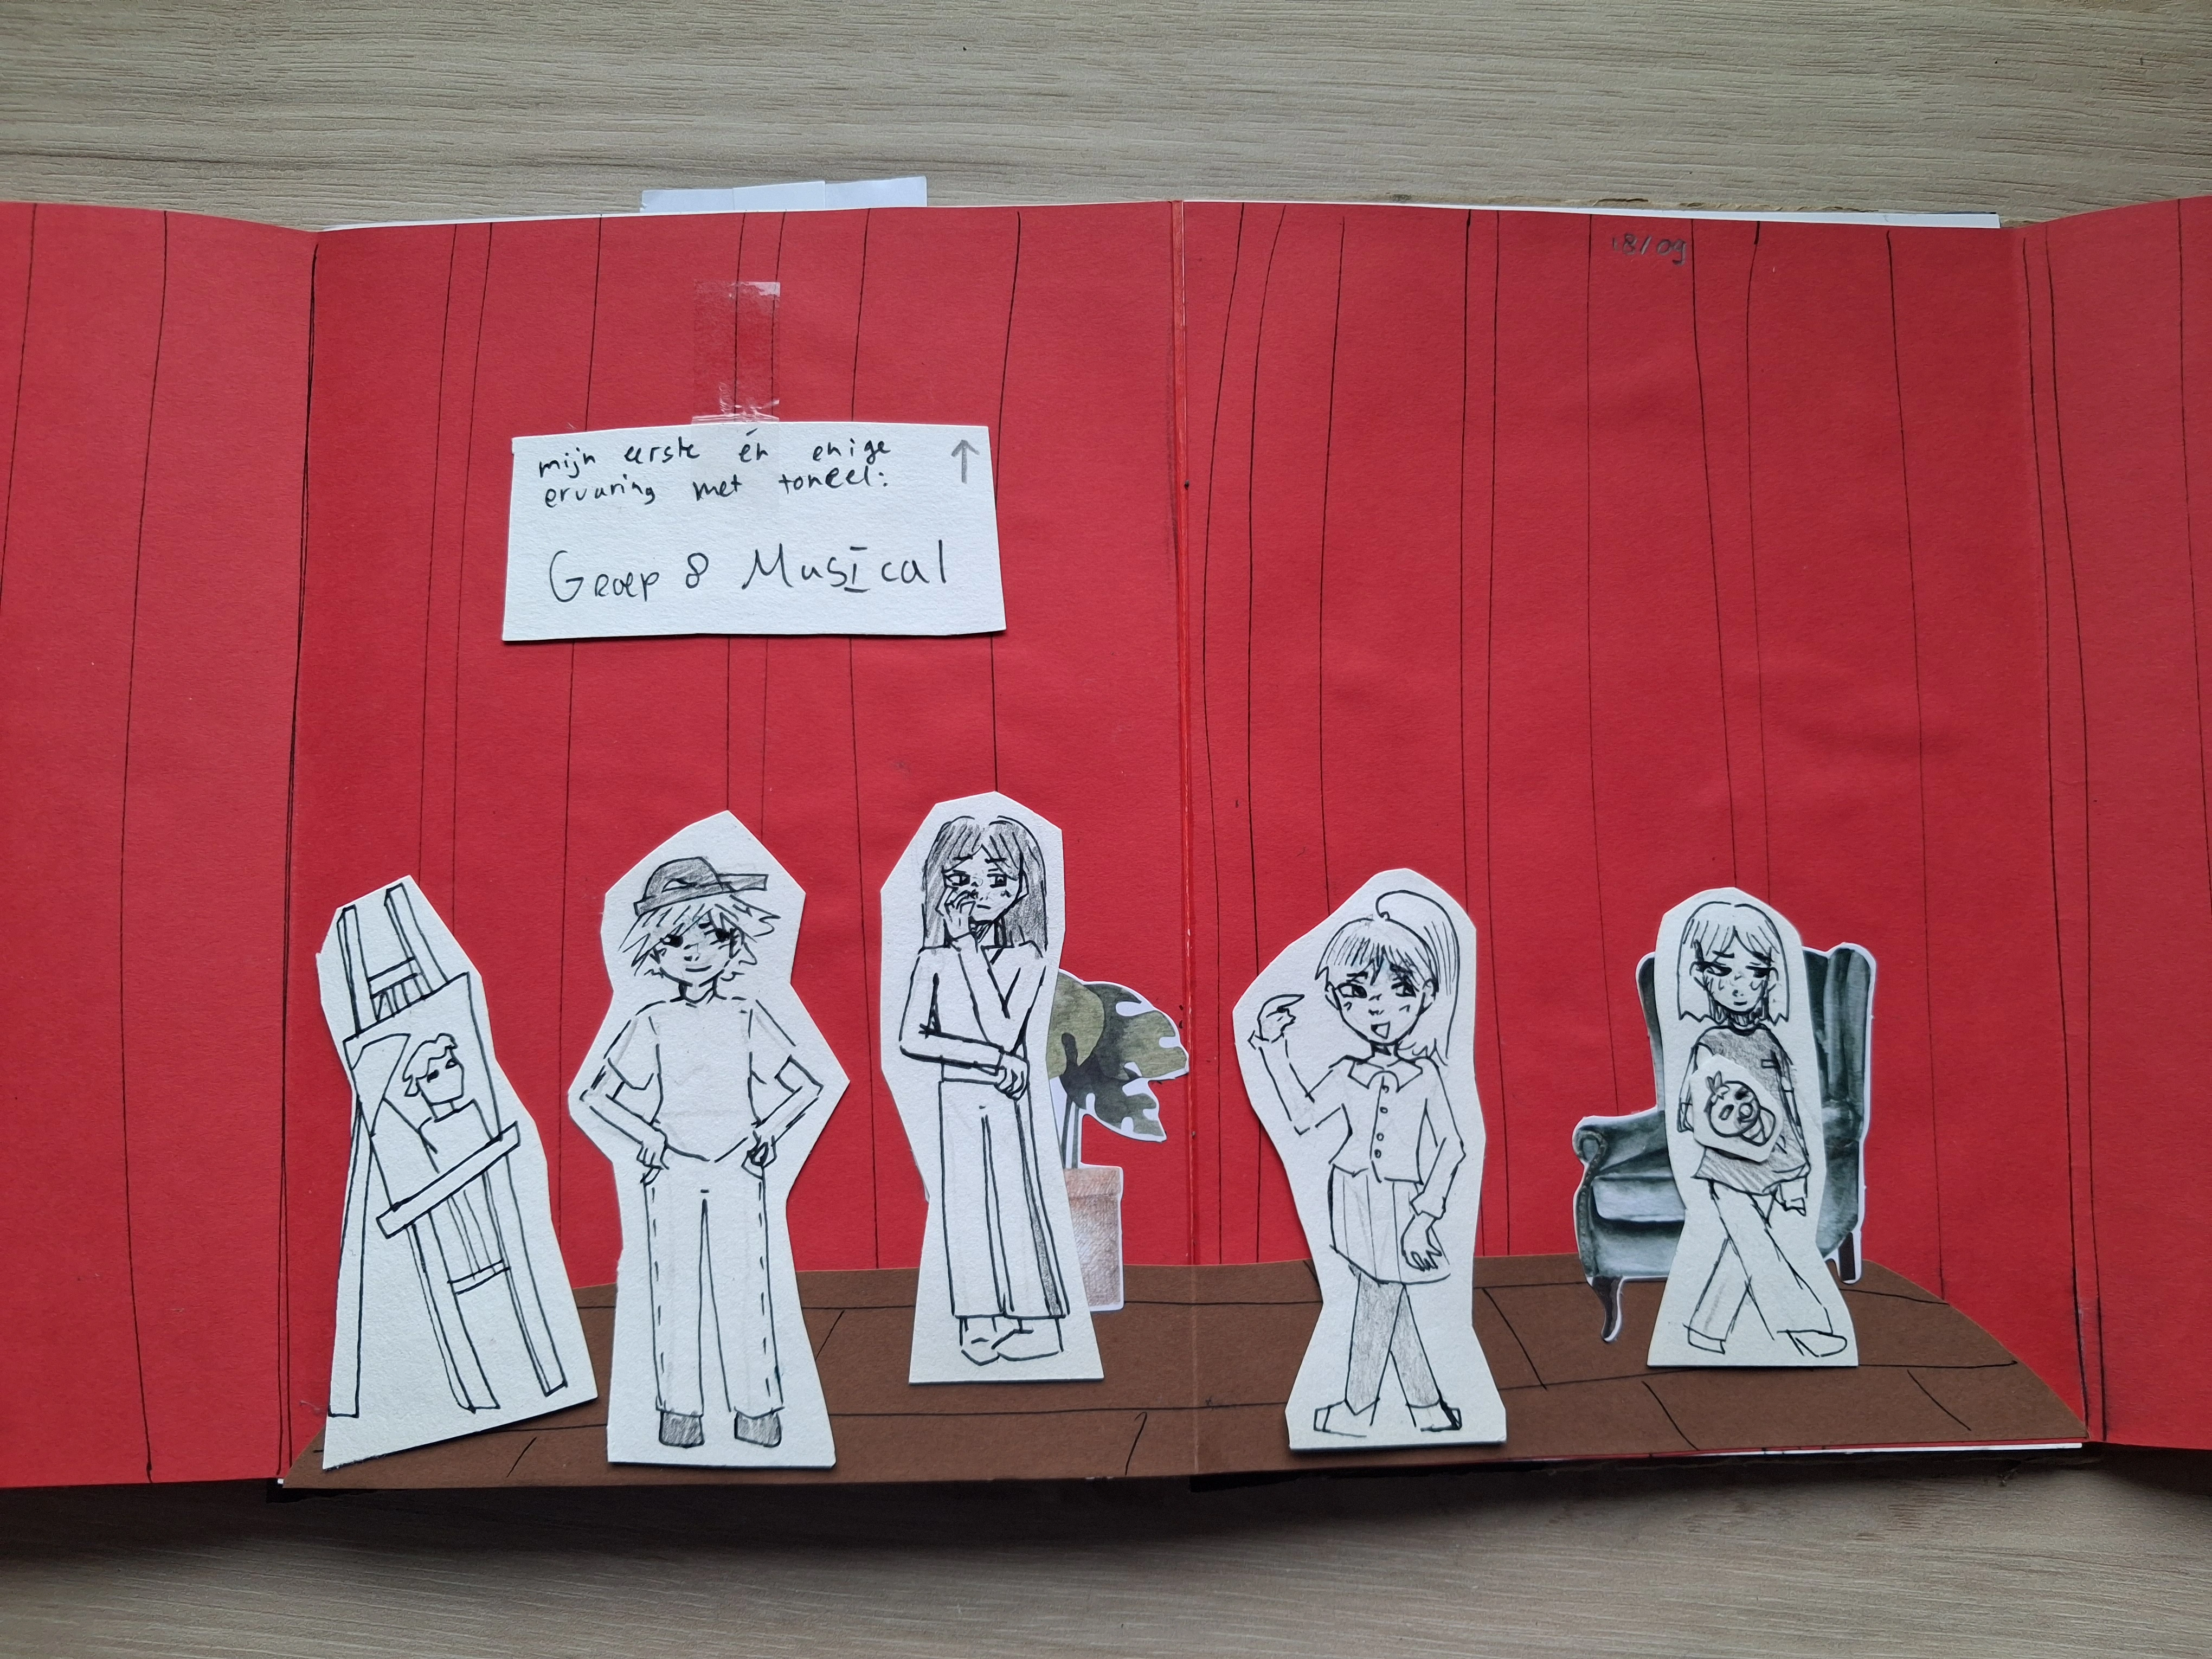 18/09
mijn eerste én enige
ervaring met toneel:
Groep 8 Musical